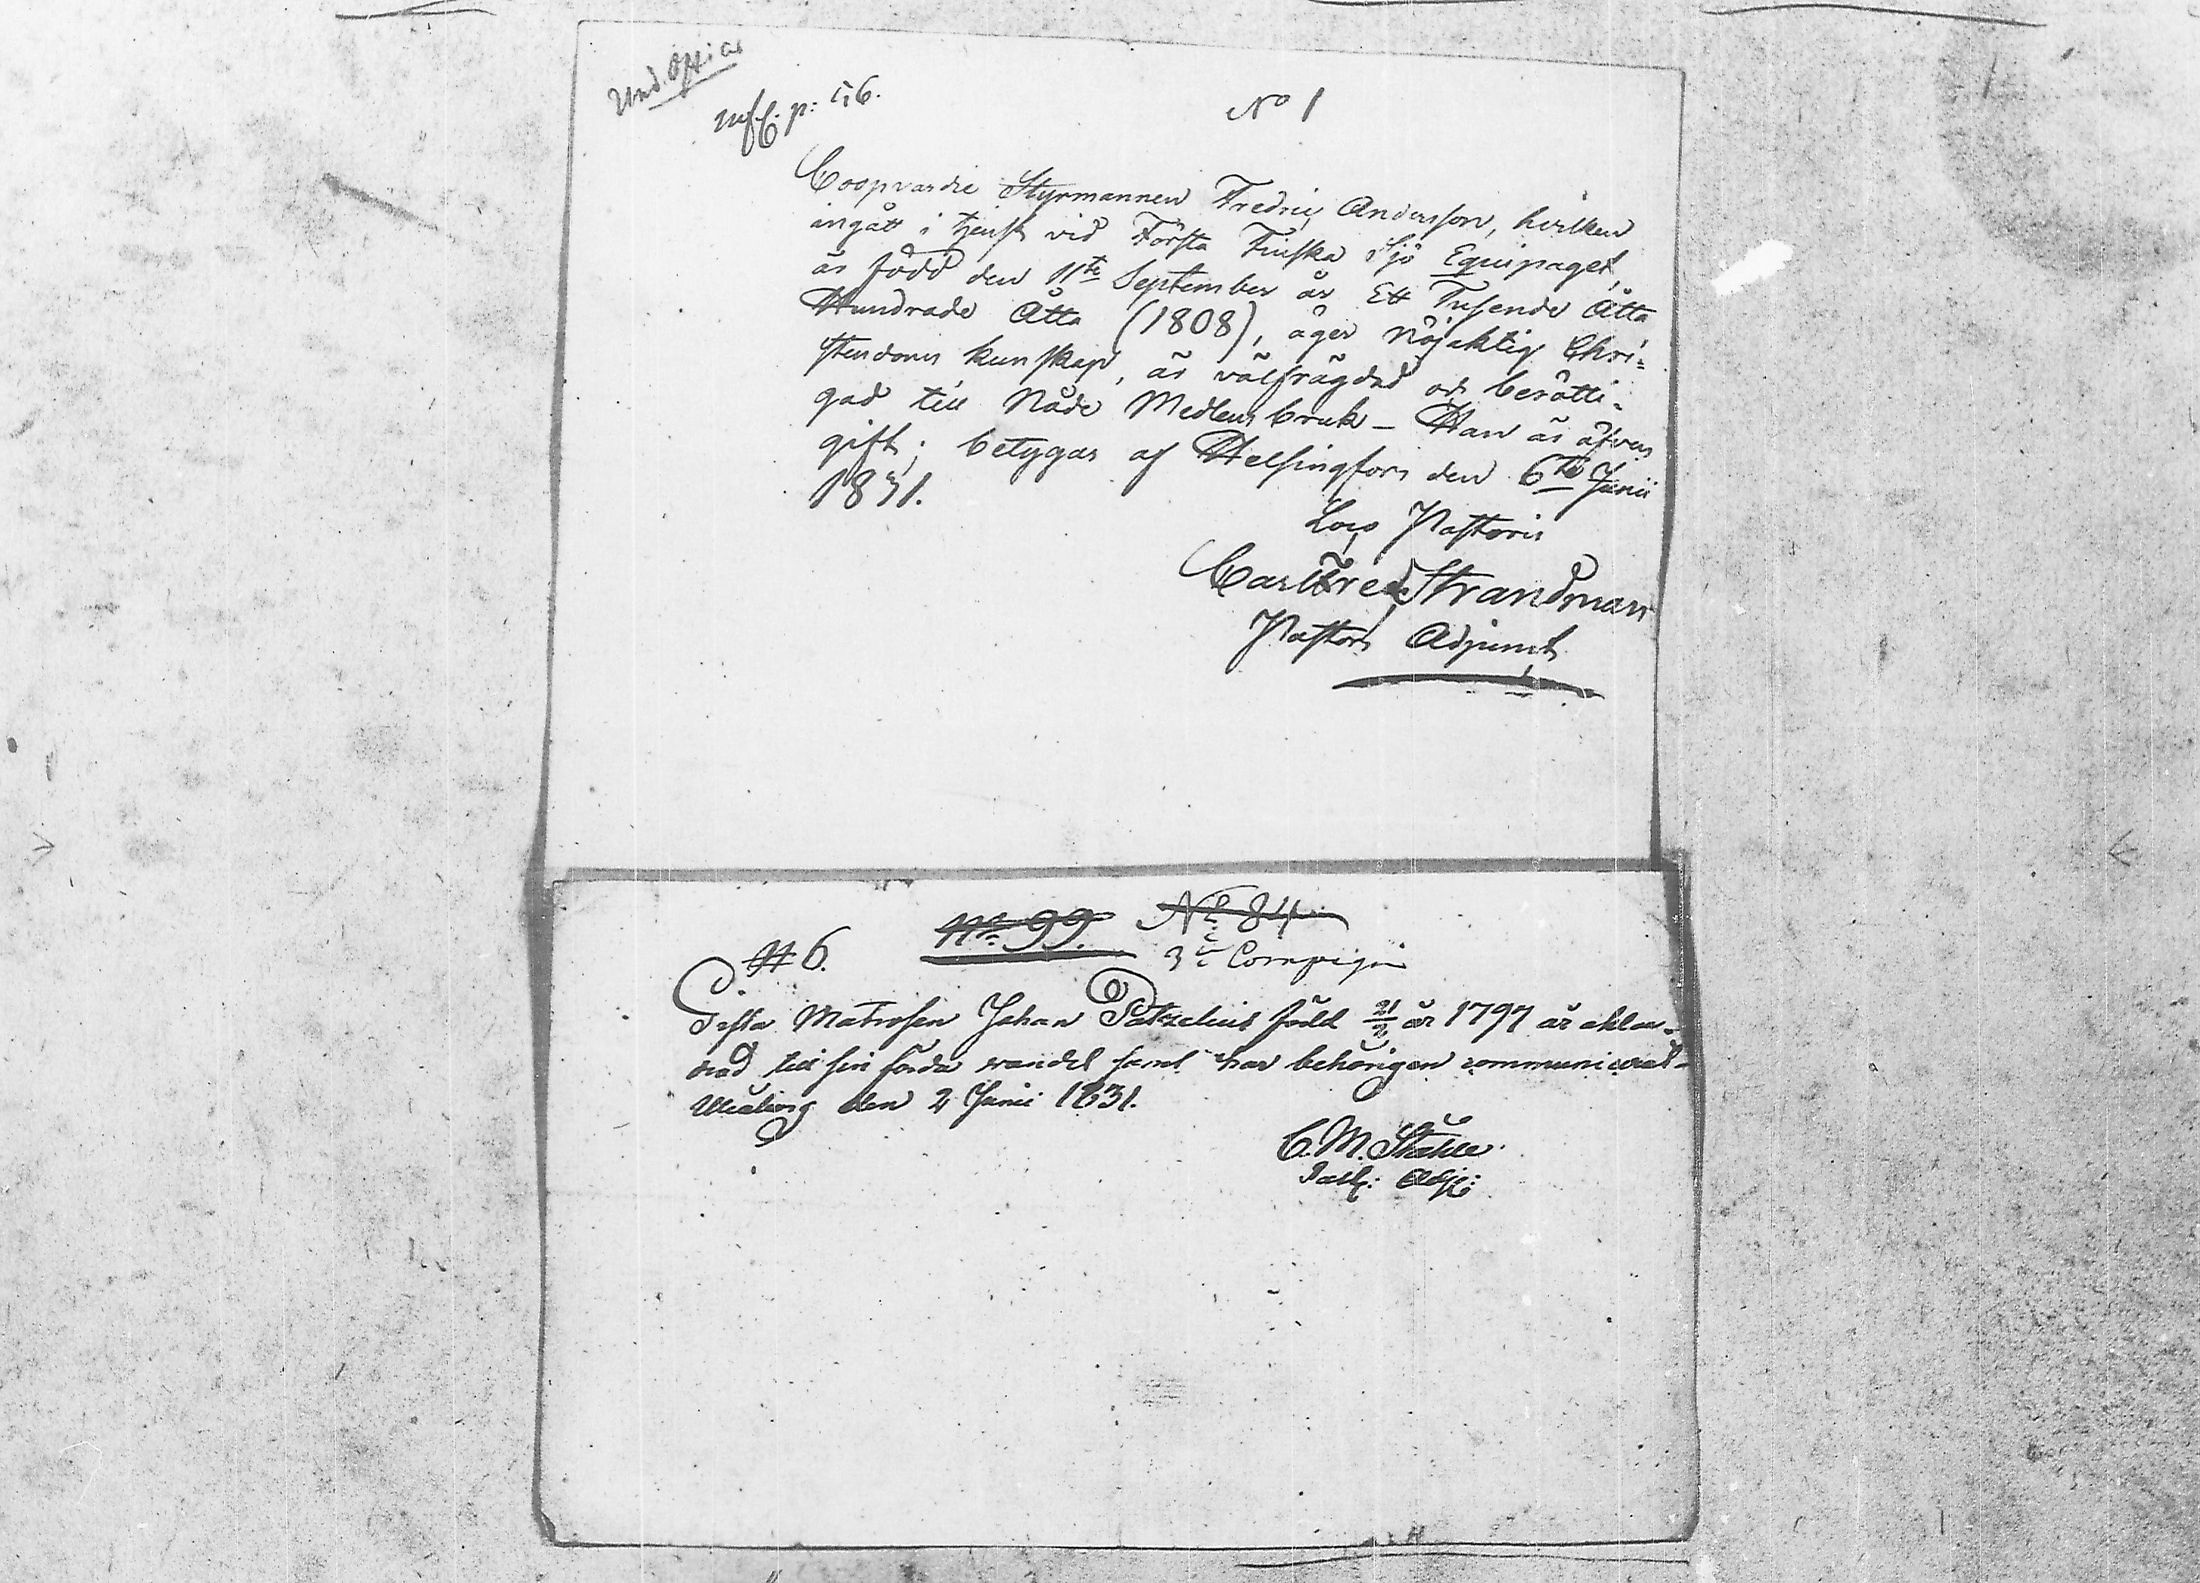 Und. Offic
No 1
Coopvardie Styrmannen Fredric Andersson, hvilken
ingått i tjenst vid Första Finska Sjö Equipaget,
är född den 11te September år Ett Tusende Åtta
Hundrade Åtta (1808), äger nöjaktig Chri-
stendoms kunskap, är välfrägdad och berätti-
gad till Nåde Medlens bruk – Han är äfven
gift; betygar af Helsingfors den 6te Junii
1831.
Loco Pastoris
Carl Fred Strandman
Pastors Adjunct
No 99. No 84
# 6.
3e Compagni
Gifta Matrosen Johan Patzelius född 21/2 år 1797 är
till sin förda vandel samt har behörigen communicerat
Uleåborg den 2 Junii 1831.
C. M. Ståhle
Past: Adj: